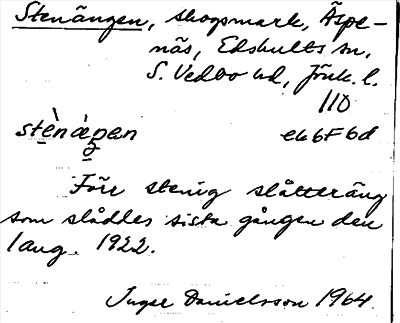 Stenängen, skogsmark, Äspe-
näs, Edshults sn,
S. Vedbo hd, Jönk. l.
110
ek6F6d
Förr stenig slåtteräng
som slåddes sista gången den
1 aug. 1922.
Inger Danielsson 1964.